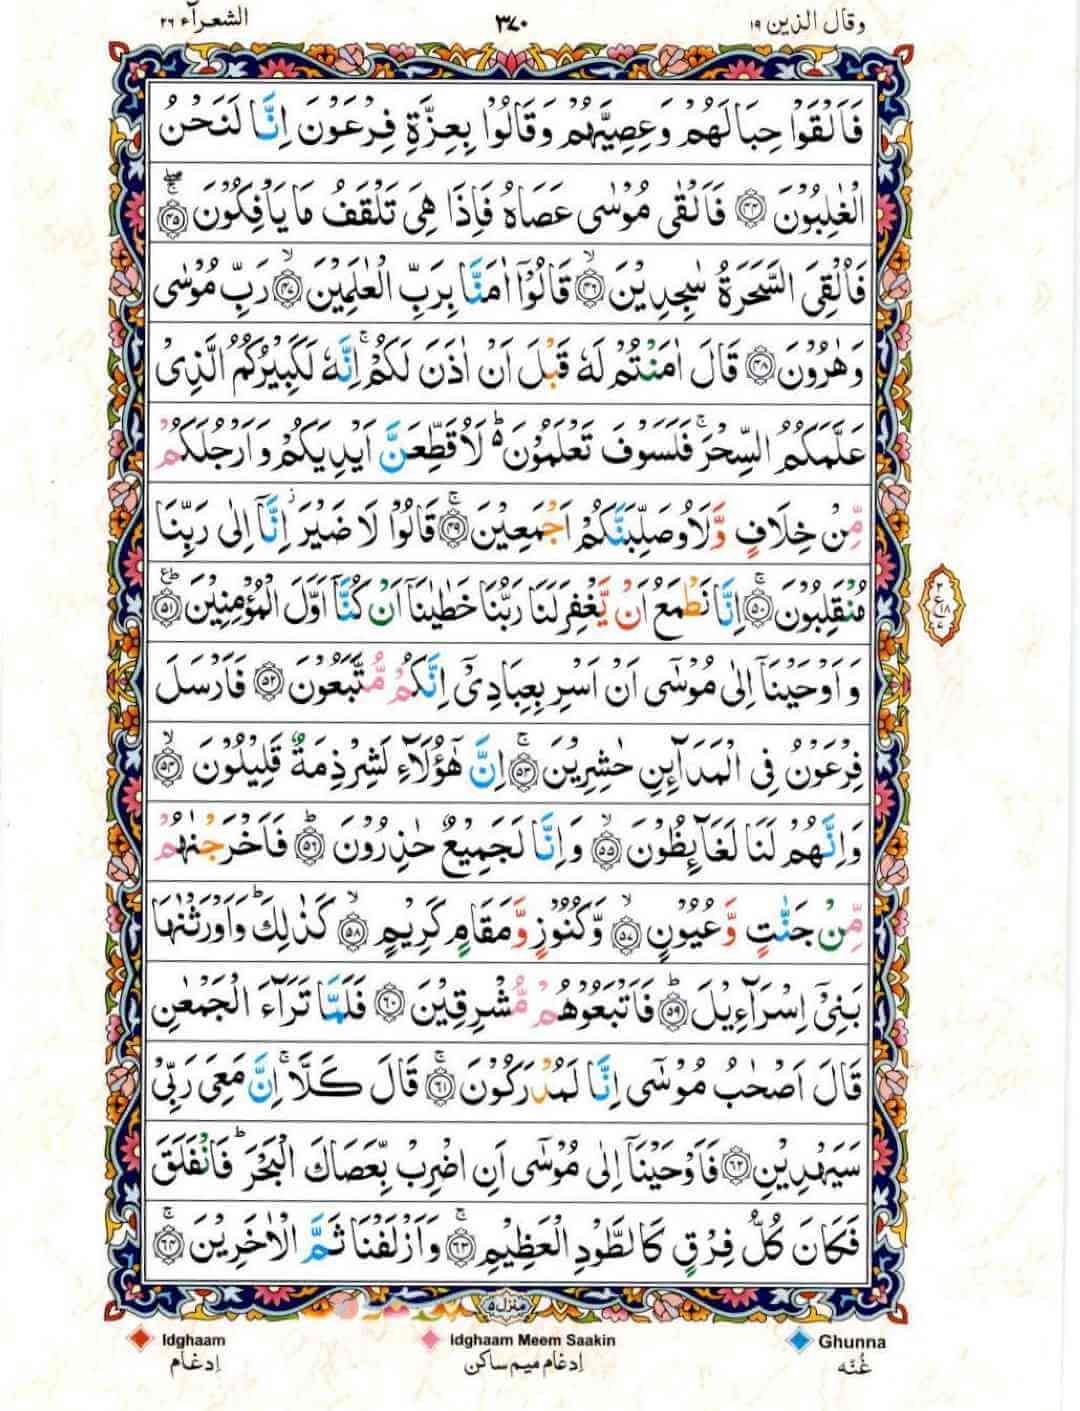 وقال الذین ۱۹ ۳۷۰ الشعرآء ۲۶
فَاَلْقَوْا حِبَالَهُمْ وَعِصِیَّهُمْ وَقَالُوْا بِعِزَّةِ فِرْعَوْنَ اِنَّا لَنَحْنُ
الْغٰلِبُوْنَ ۝۴۴ فَاَلْقٰی مُوْسٰی عَصَاهُ فَاِذَا هِیَ تَلْقَفُ مَا یَاْفِكُوْنَ ۝۴۵ۚۖ
فَاُلْقِیَ السَّحَرَةُ سٰجِدِیْنَ ۝۴۶ۙ قَالُوْۤا اٰمَنَّا بِرَبِّ الْعٰلَمِیْنَ ۝۴۷ۙ رَبِّ مُوْسٰی
وَهٰرُوْنَ ۝۴۸ قَالَ اٰمَنْتُمْ لَهٗ قَبْلَ اَنْ اٰذَنَ لَكُمْ ۚ اِنَّهٗ لَكَبِیْرُكُمُ الَّذِیْ
عَلَّمَكُمُ السِّحْرَ ۚ فَلَسَوْفَ تَعْلَمُوْنَ ۬ؕ لَاُقَطِّعَنَّ اَیْدِیَكُمْ وَاَرْجُلَكُمْ
مِّنْ خِلَافٍ وَّلَاُوصَلِّبَنَّكُمْ اَجْمَعِیْنَ ۝۴۹ۚ قَالُوْا لَا ضَیْرَ ؗ اِنَّاۤ اِلٰی رَبِّنَا
مُنْقَلِبُوْنَ ۝۵۰ۚ اِنَّا نَطْمَعُ اَنْ یَّغْفِرَ لَنَا رَبُّنَا خَطٰیٰنَاۤ اَنْ كُنَّاۤ اَوَّلَ الْمُؤْمِنِیْنَ ۝۵۱ؕ ع
وَاَوْحَیْنَاۤ اِلٰی مُوْسٰۤی اَنْ اَسْرِ بِعِبَادِیْۤ اِنَّكُمْ مُّتَّبَعُوْنَ ۝۵۲ فَاَرْسَلَ
فِرْعَوْنُ فِی الْمَدَآىِٕنِ حٰشِرِیْنَ ۝۵۳ۚ اِنَّ هٰۤؤُلَآءِ لَشِرْذِمَةٌ قَلِیْلُوْنَ ۝۵۴ۙ
وَاِنَّهُمْ لَنَا لَغَآىِٕظُوْنَ ۝۵۵ۙ وَاِنَّا لَجَمِیْعٌ حٰذِرُوْنَ ۝۵۶ؕ فَاَخْرَجْنٰهُمْ
مِّنْ جَنّٰتٍ وَّعُیُوْنٍ ۝۵۷ۙ وَّكُنُوْزٍ وَّمَقَامٍ كَرِیْمٍ ۝۵۸ۙ كَذٰلِكَ ؕ وَاَوْرَثْنٰهَا
بَنِیْۤ اِسْرَآءِیْلَ ۝۵۹ؕ فَاَتْبَعُوْهُمْ مُّشْرِقِیْنَ ۝۶۰ فَلَمَّا تَرَآءَ الْجَمْعٰنِ
قَالَ اَصْحٰبُ مُوْسٰۤی اِنَّا لَمُدْرَكُوْنَ ۝۶۱ۚ قَالَ كَلَّا ۚ اِنَّ مَعِیَ رَبِّیْ
سَیَهْدِیْنِ ۝۶۲ فَاَوْحَیْنَاۤ اِلٰی مُوْسٰۤی اَنِ اضْرِبْ بِّعَصَاكَ الْبَحْرَ ؕ فَانْفَلَقَ
فَكَانَ كُلُّ فِرْقٍ كَالطَّوْدِ الْعَظِیْمِ ۝۶۳ۚ وَاَزْلَفْنَا ثَمَّ الْاٰخَرِیْنَ ۝۶۴ۚ
منزل ۵
Idghaam Idghaam Meem Saakin Ghunna
اِدغام اِدغام میم ساکن غُنّه